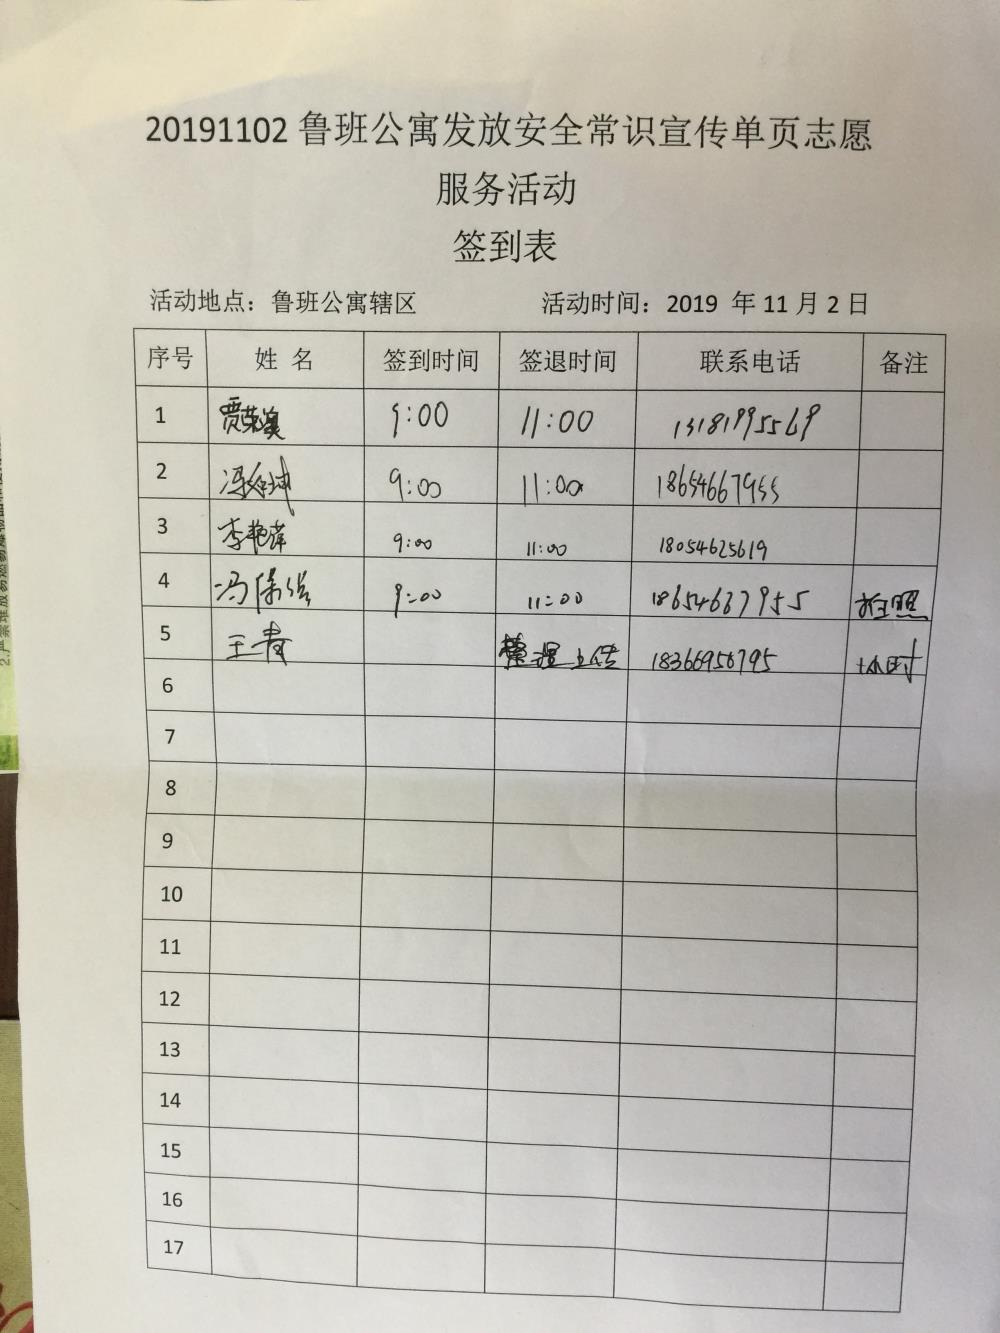 20191102鲁班公寓发放安全常识宣传单页志愿
服务活动
签到表
活动地点：鲁班公寓辖区 活动时间：2019 年 11 月 2 日
序号 姓 名 签到时间 签退时间 联系电话 备注
1 9:00 11:00 13181995569
2 9:00 11:00 18654667955
3 李艳萍 9:00 11:00 18054625619
4 9:00 11:00 18654637955 拍照
5 王青 整理上传 18366956795 1小时
6
7
8
9
10
11
12
13
14
15
16
17